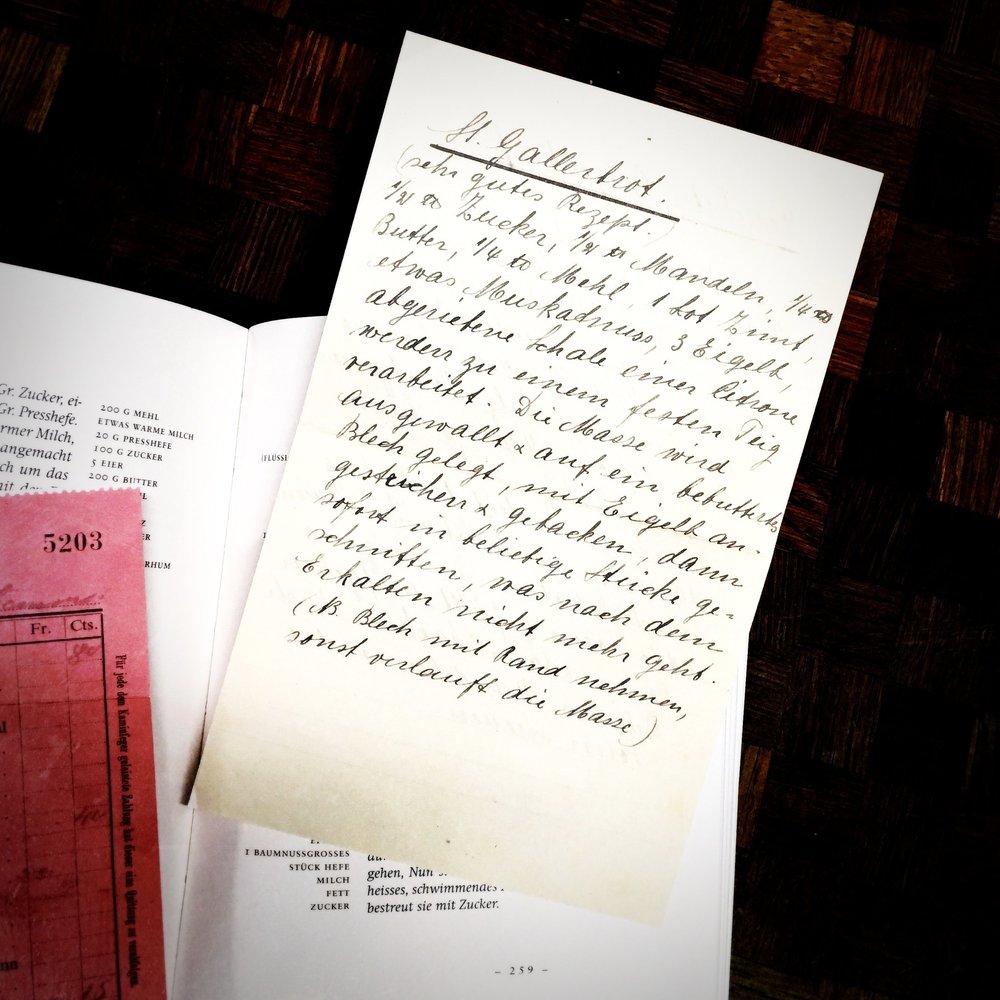 St. Gallerbrot.
(sehr gutes Rezept.)
1/2 ℔ Zucker, 1/2 ℔ Mandeln, 1/4 ℔
Butter, 1/4 ℔ Mehl, 1 Lot Zimt,
etwas Muskatnuss, 3 Eigelb,
abgeriebene Schale einer Citrone
werden zu einem festen Teig
verarbeitet. Die Masse wird
ausgewallt & auf ein bebuttertes
Blech gelegt, mit Eigelb an-
gestrichen & gebacken, dann
sofort in beliebige Stücke ge-
schnitten, was nach dem
Erkalten nicht mehr geht.
(NB. Blech mit Rand nehmen,
sonst verlauft die Masse)
Gr. Zucker, ei-
Gr. Presshefe.
rmer Milch,
angemacht
ch um das
200 G MEHL
ETWAS WARME MILCH
20 G PRESSHEFE
100 G ZUCKER
5 EIER
200 G BUTTER
RHUM
(FLÜSSI
5203
Fr. Cts.
Für jede dem Kaminfeger geleistete Zahlung hat dieser eine Quittung zu verabfolgen.
1 BAUMNUSSGROSSES
STÜCK HEFE
MILCH
FETT
ZUCKER
gehen, Nun
heisses, schwimmendes
bestreut sie mit Zucker.
– 259 –